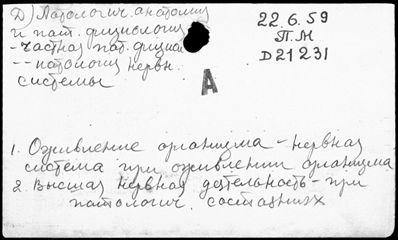 Д) Патологич. анатомия
и пат. физиология
- частная пат. физиол
-- патология нервн.
системы
22.6.59
П.М
D21231
А
1. Оживление организма - нервная
система при оживлении организма
2. Высшая нервная деятельность - при
патологич. состояниях